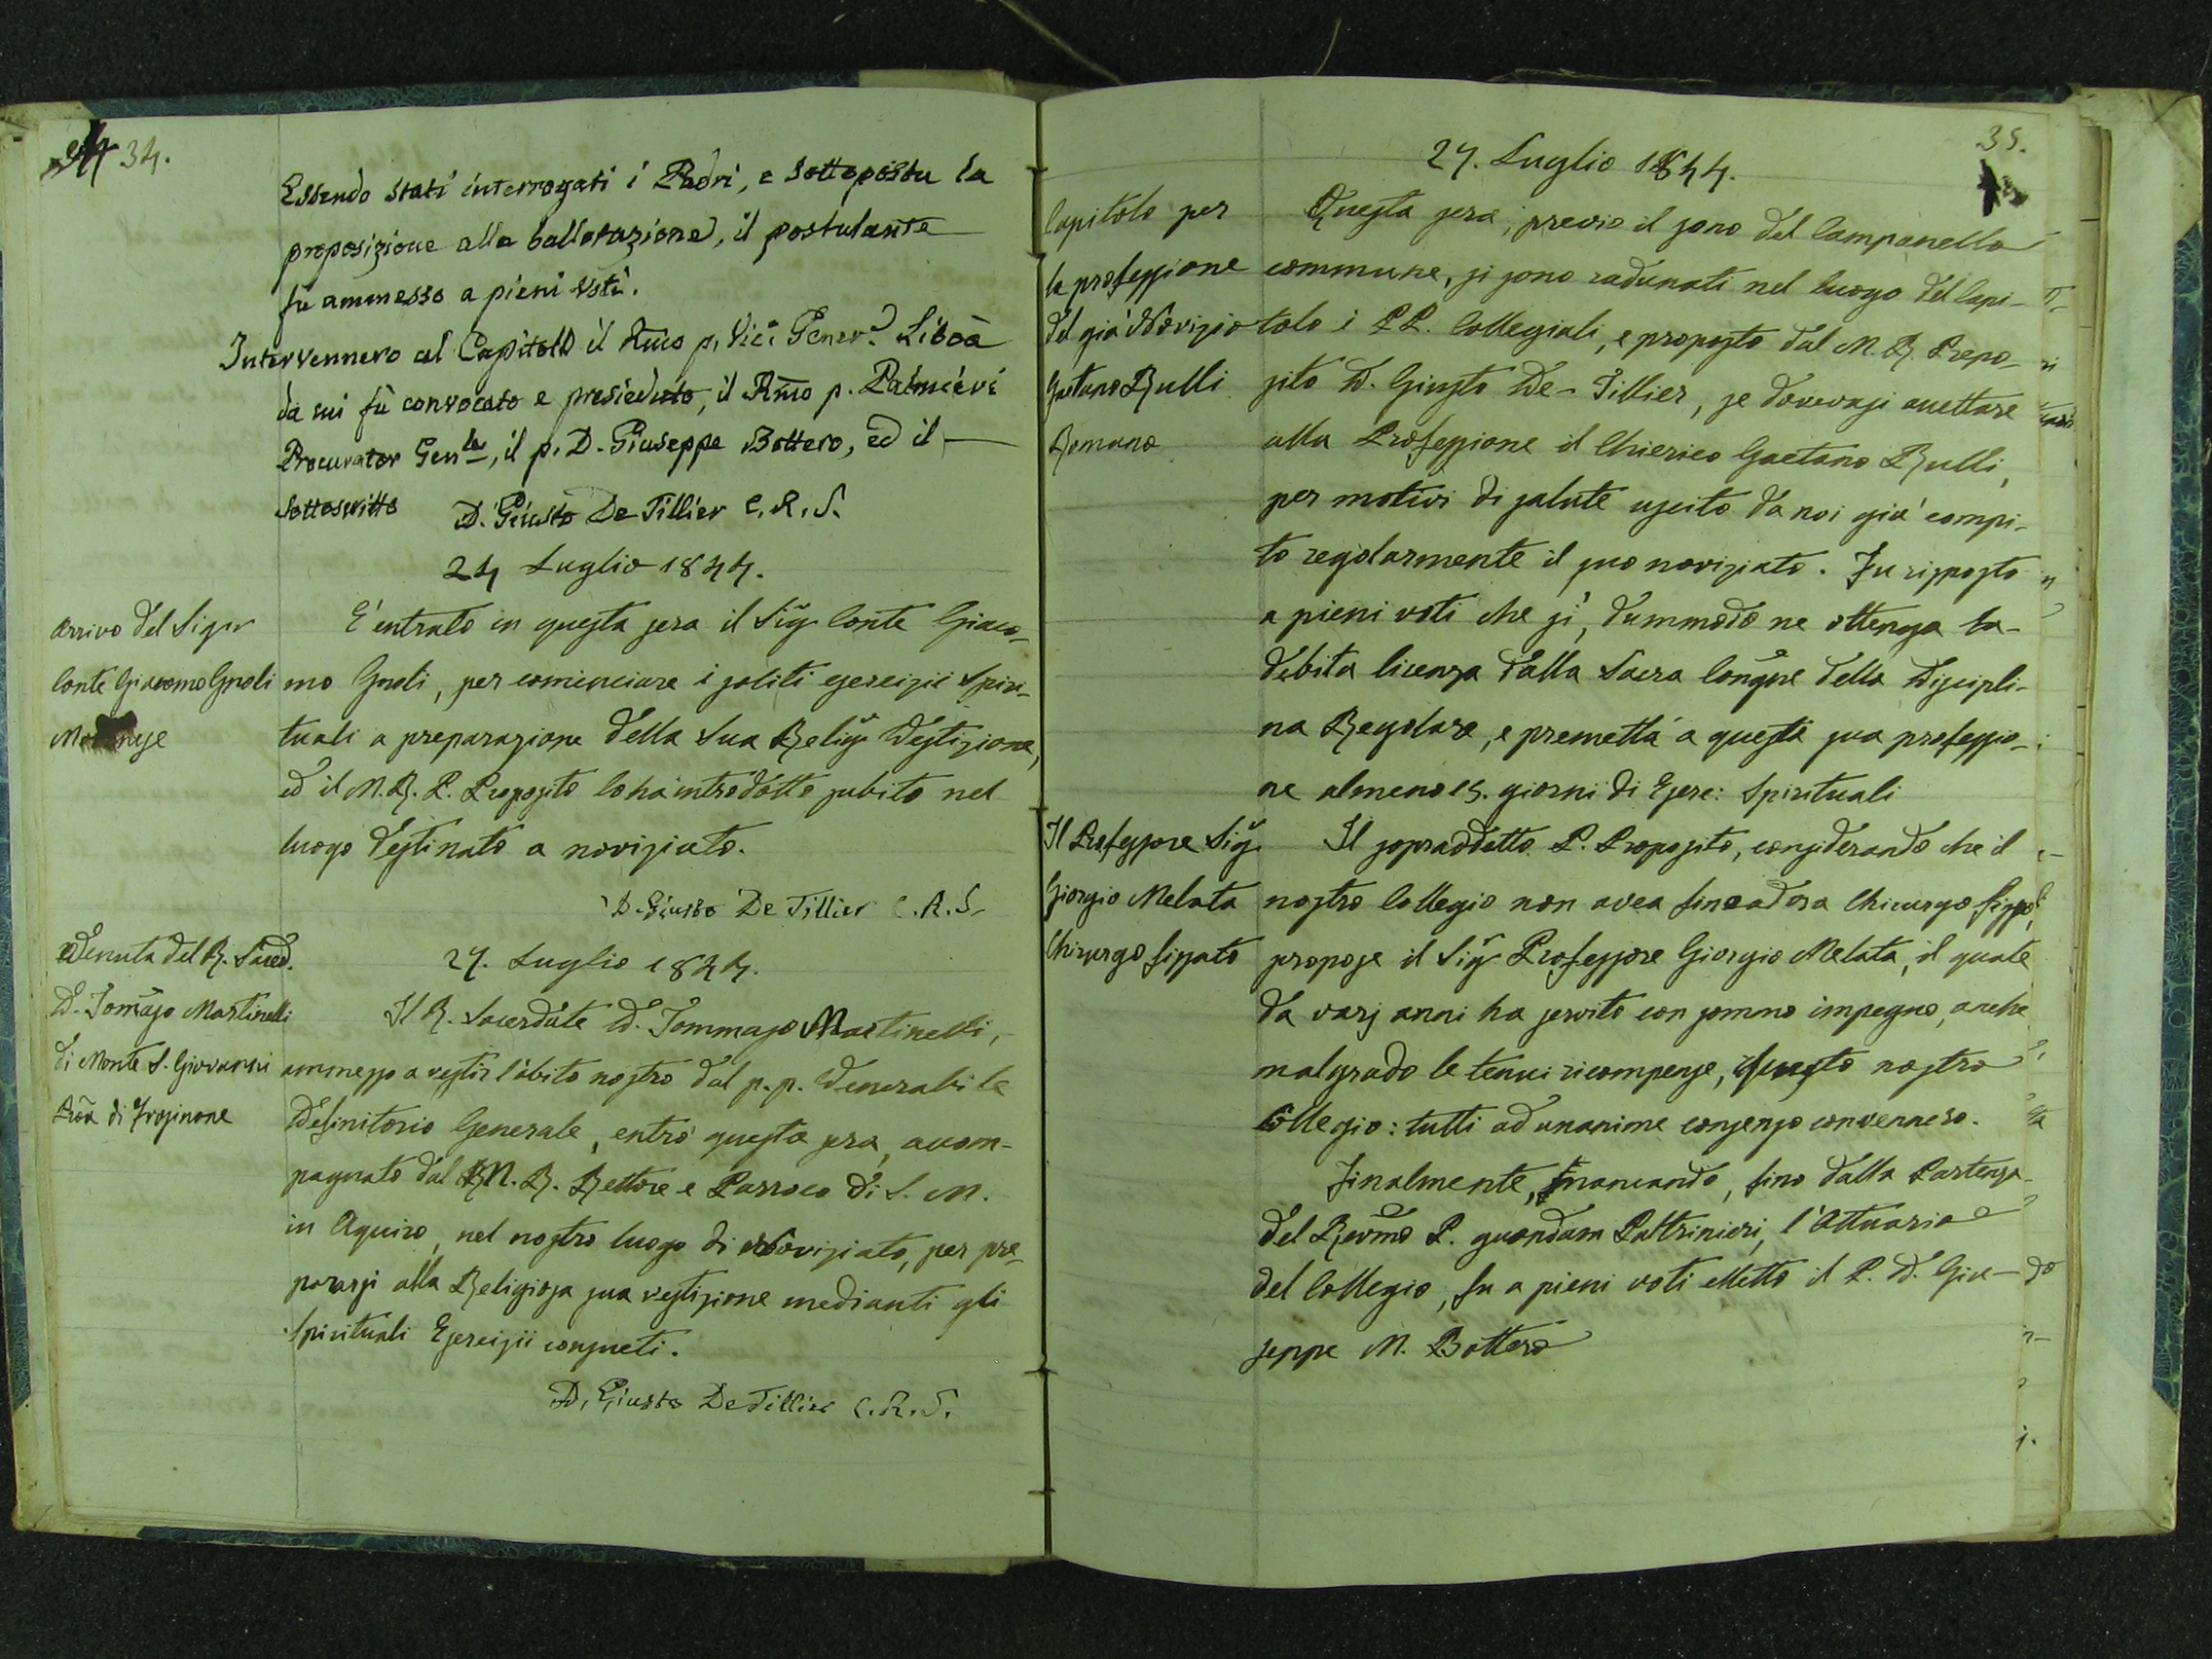 34.
Essendo stati interrogati i Padri, e sottoposta la
proposizione alla ballotazione, il postulante
fu ammesso a pieni voti.
Intervennero al Capitolo il Rmo p. Vic: Gener. Libois
da cui fù convocato e presieduto, il Rmo p. Palmieri
Procurator Genle, il p. D. Giuseppe Bottero, ed il
sottoscritto D. Giusto De Tillier C. R. S.
24 Luglio 1844.
Arrivo del Sigr
Conte Giacomo Gnoli
E' entrato in questa sera il Sig Conte Giaco-
mo Gnoli, per cominciare i soliti esercizii Spiri-
tuali a preparazione della Sua Relig. Vestizione,
ed il M. R. P. Preposito lo ha introdotto subito nel
luogo destinato a noviziato.
D. Giusto De Tillier C. R. S.
Venuta del R. Sacerd.
D. Tommaso Martinelli
di Monte S. Giovanni
di Frosinone
27. Luglio 1844.
Il R. Sacerdote D. Tommaso Martinelli,
ammesso a vestir l'abito nostro dal p. p. Venerabile
Definitorio Generale, entrò questa sera, accom-
pagnato dal M. R. Rettore e Parroco di S. M.
in Aquiro, nel nostro luogo di Noviziato, per pre-
pararsi alla Religiosa sua vestizione medianti gli
Spirituali Esercizii consueti.
D. Giusto De Tillier C. R. S.
35.
27. Luglio 1844.
Capitolo per
la professione
del già Novizio
Gaetano Rulli
Romano
Questa sera, previo il sono del Campanello
commune, si sono radunati nel luogo del Capi-
tolo i PP. Collegiali, e proposto dal M. R. Prepo-
sito D. Giusto De-Tillier, se dovevasi accettare
alla Professione il Chierico Gaetano Rulli,
per motivi di salute uscito da noi già compi-
to regolarmente il suo noviziato. Fu risposto
a pieni voti che sì, dummodo ne ottenga la
debita licenza dalla Sacra Congne della Discipli-
na Regolare, e premetta a questa sua professio-
ne almeno 15. giorni di Eserc: Spirituali
Il Professore Sig.
Giorgio Melata
Chirurgo fissato
Il sopraddetto P. Preposito, considerando che il
nostro Collegio non avea finadora Chirurgo fisso,
propose il Sig Professore Giorgio Melata, il quale
da varj anni ha servito con sommo impegno, anche
malgrado le tenui ricompense, questo nostro
Collegio: tutti ad unanime consenso convennero.
Finalmente, mancando, fino dalla Partenza
del Revmo P. quondam Paltrinieri, l'Attuario
del Collegio, fu a pieni voti elletto il P. D. Giu-
seppe M. Bottero